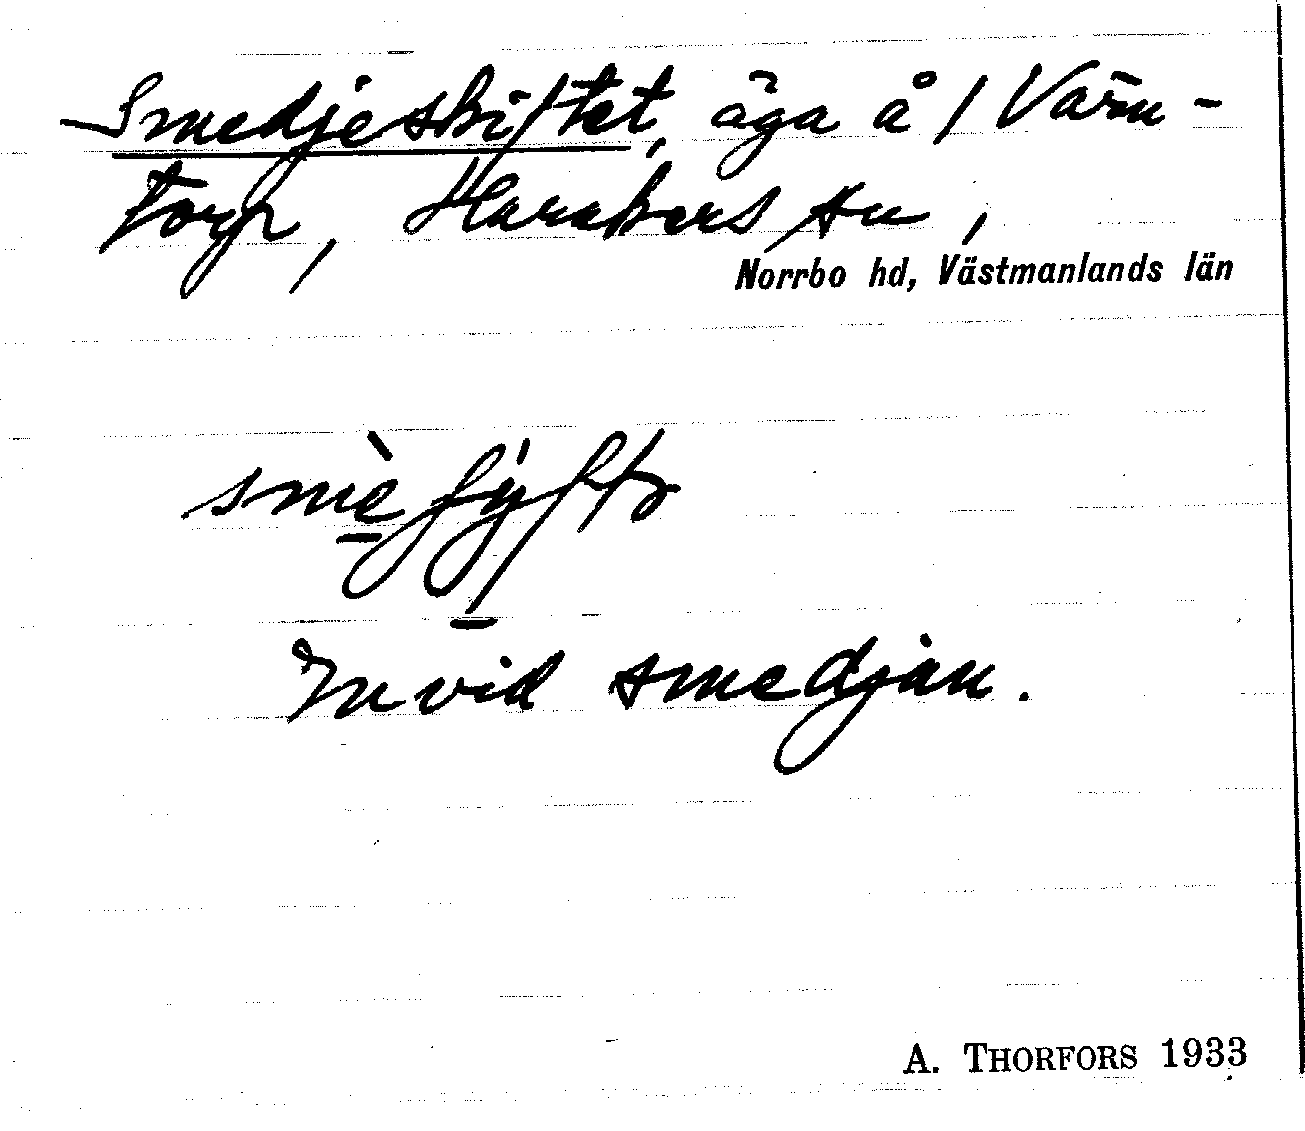 Smedjeskiftet, äga å / Värm-
torp, Harakers sn,
Norrbo hd, Västmanlands län
Invid smedjan.
A. THORFORS 1933